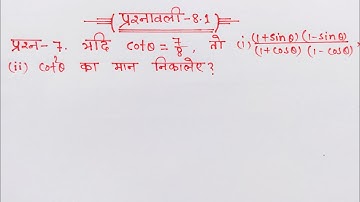 प्रश्नावली-8.1
प्रश्न-7. यदि cotθ = 7/8, तो (i) (1+sinθ)(1-sinθ)/(1+cosθ)(1-cosθ),
(ii) cot²θ का मान निकालिए?